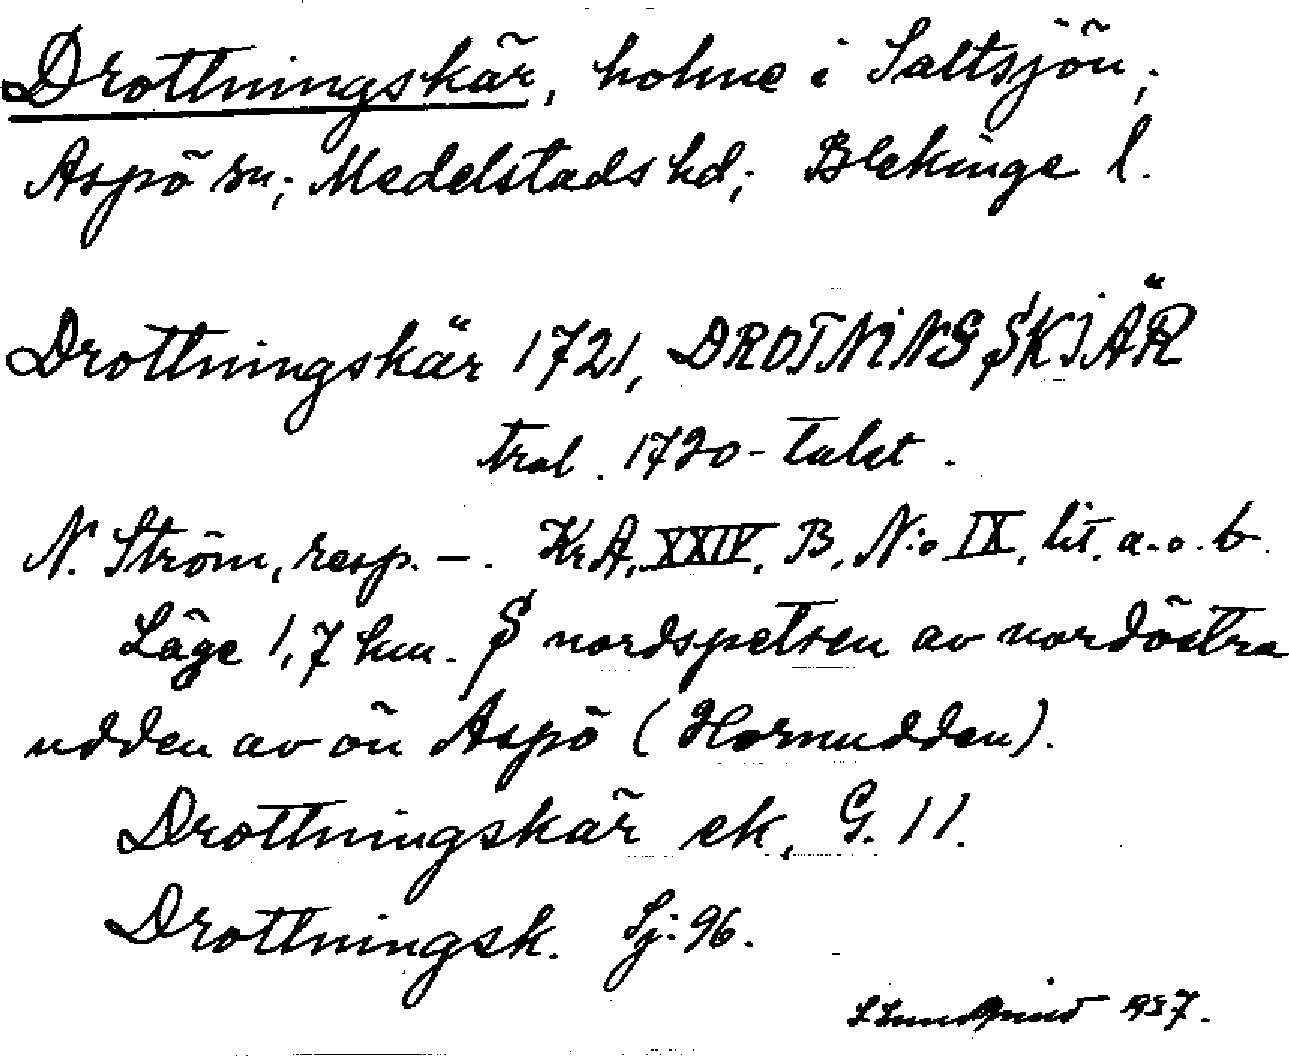 Drottningskär, holme i Saltsjön;
Aspö sn; Medelstads hd; Blekinge l.
Drottningskär 1721, DROTNINGSKIÄR
trol. 1720-talet.
N. Ström, resp. –. KrA, XXIV, B, N:o IX, lit. a. o. b.
Läge 1,7 km. S nordspetsen av nordöstra
udden av ön Aspö (Hornudden).
Drottningskär ek, G. 11.
Drottningsk. Sj: 96.
1937.